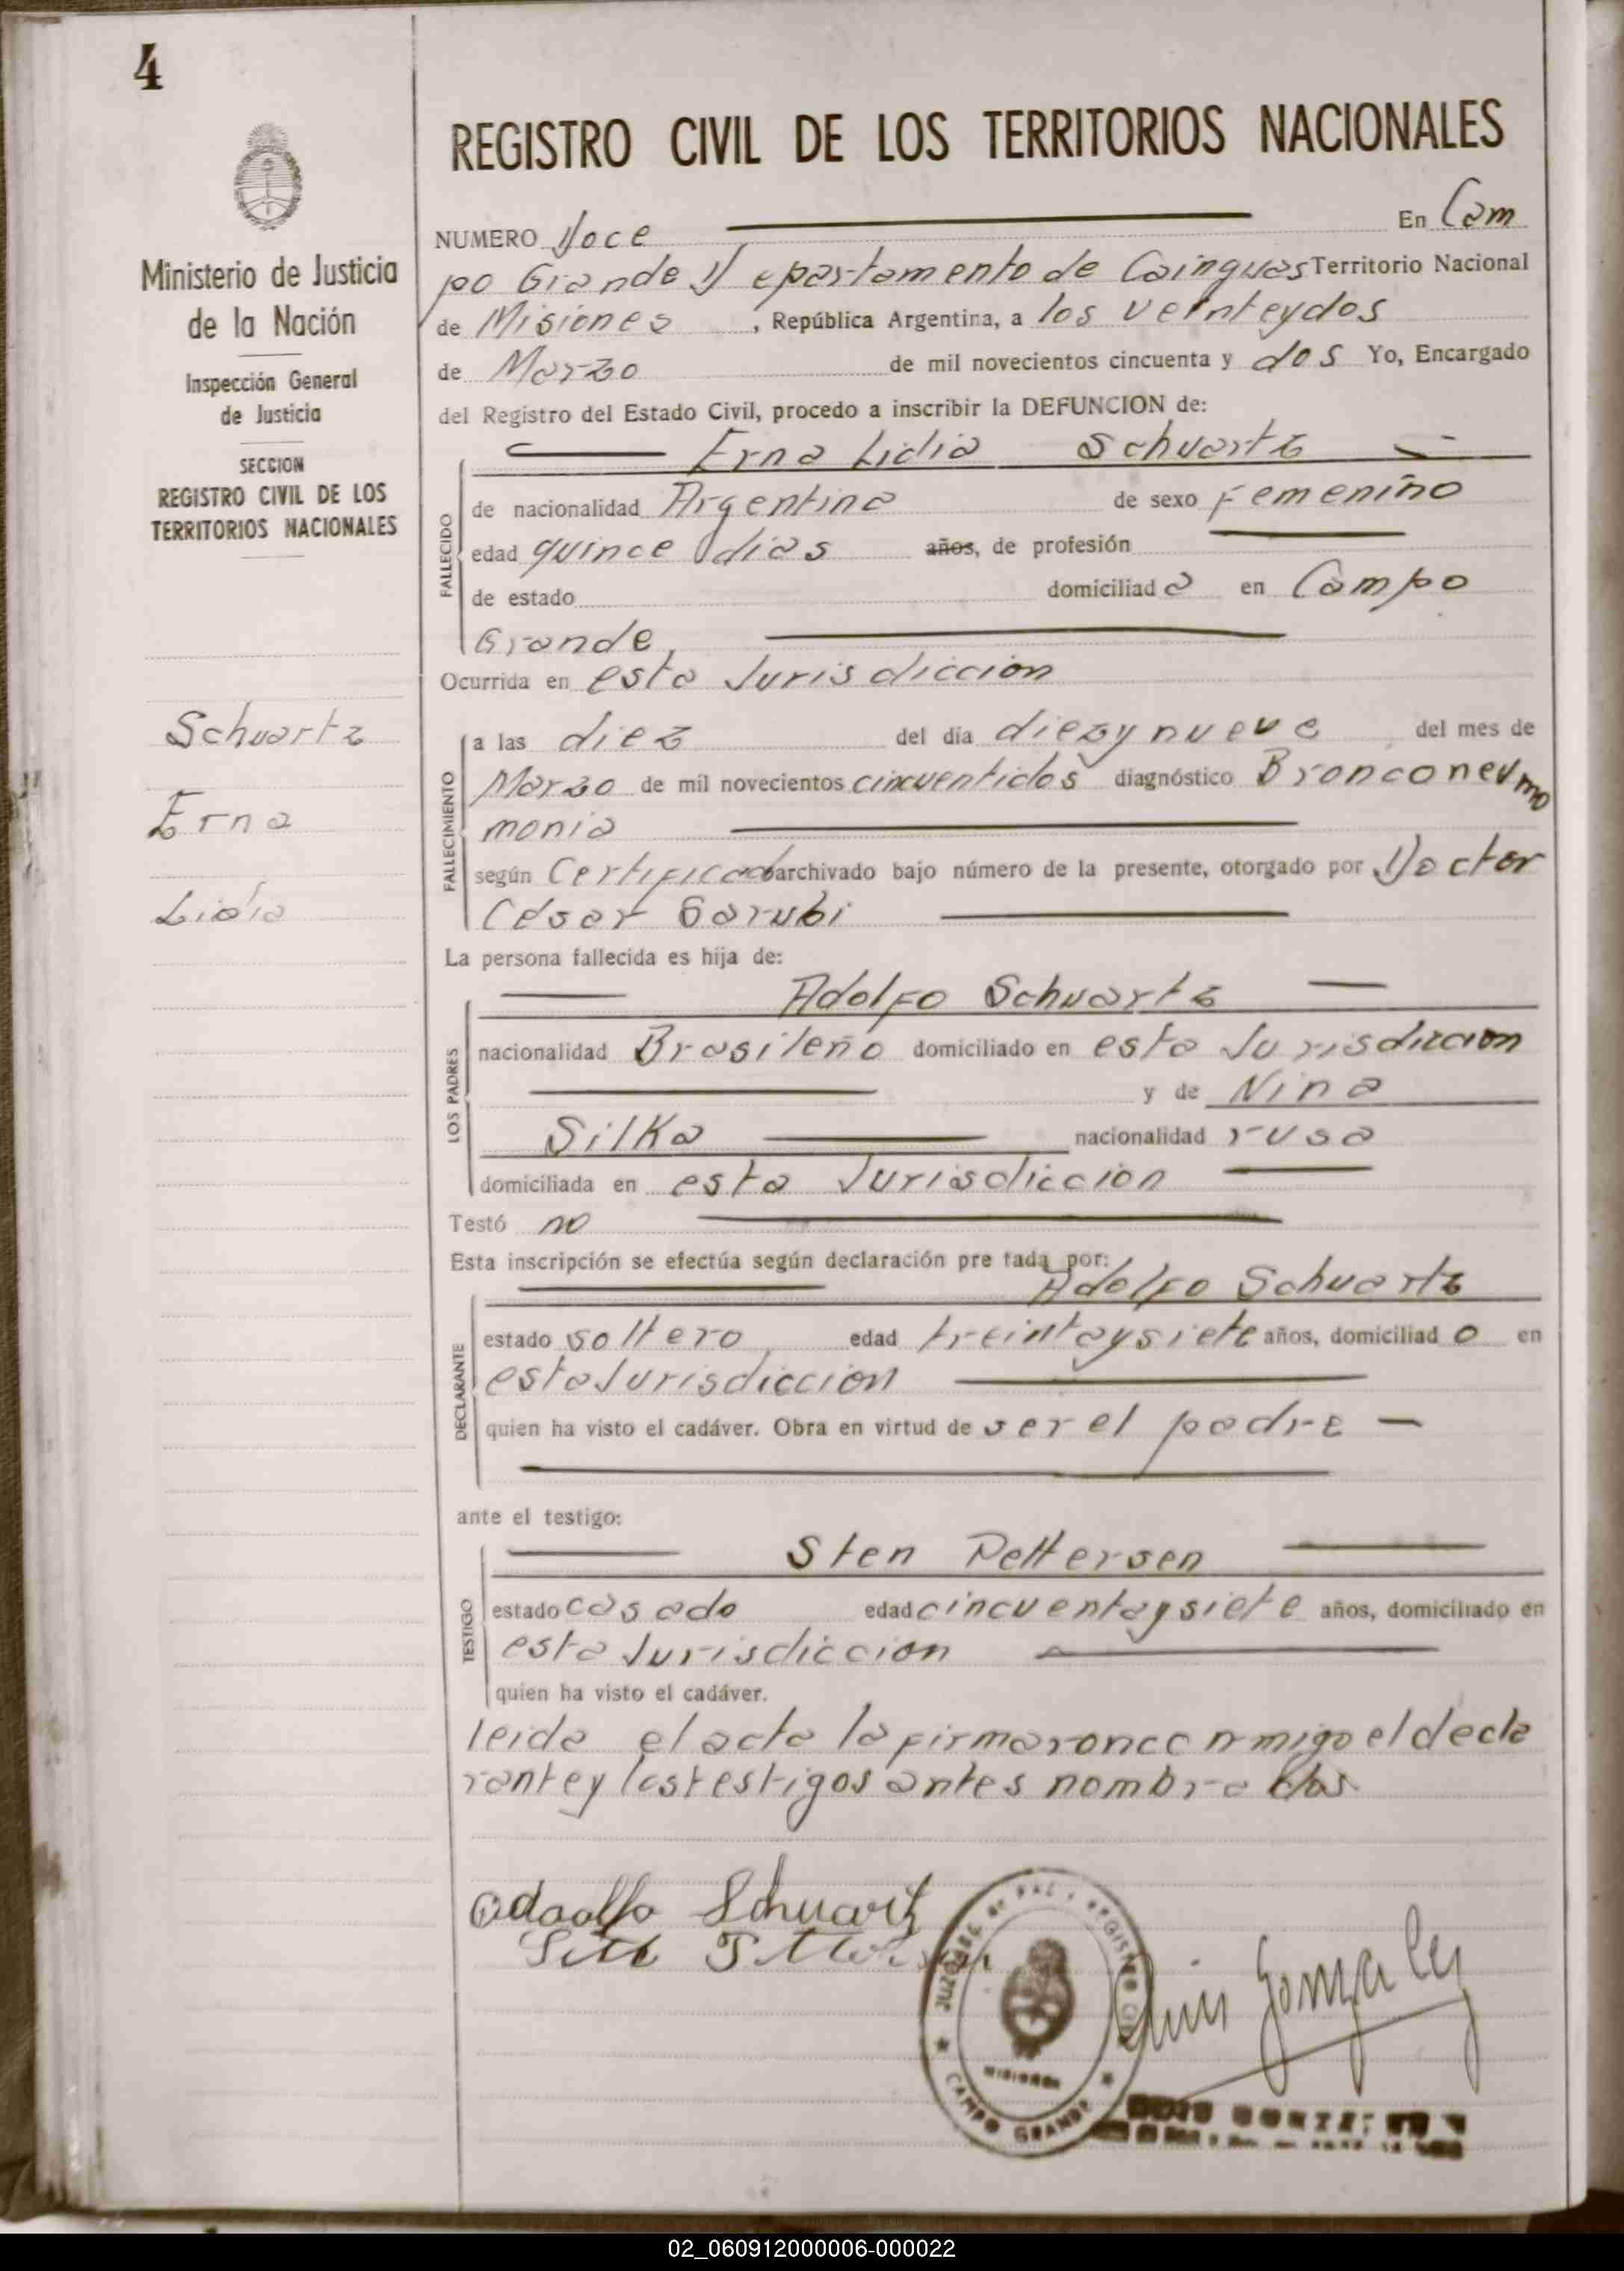 4
REGISTRO CIVIL DE LOS TERRITORIOS NACIONALES
Ministerio de Justicia
de la Nación
Inspección General
de Justicia
SECCION
REGISTRO CIVIL DE LOS
TERRITORIOS NACIONALES
Schuartz
Erna
Lidia
NUMERO Doce En Cam
po Grande Departamento de Cainguas Territorio Nacional
de Misiones, República Argentina, a los veinteydos
de Marzo de mil novecientos cincuenta y dos Yo, Encargado
del Registro del Estado Civil, procedo a inscribir la DEFUNCION de:
Erna Lidia Schuartz
FALLECIDO
de nacionalidad Argentina de sexo Femenino
edad quince dias años, de profesión
de estado domiciliad a en Campo
Grande
Ocurrida en esta Jurisdiccion
FALLECIMIENTO
a las diez del día diezynueve del mes de
Marzo de mil novecientos cincuentidos diagnóstico Bronconeumo
monia
según Certificado archivado bajo número de la presente, otorgado por Doctor
César Garubi
La persona fallecida es hija de:
LOS PADRES
Adolfo Schuartz
nacionalidad Brasileño domiciliado en esta Jurisdiccion
y de Nina
Silka nacionalidad rusa
domiciliada en esta Jurisdiccion
Testó no
Esta inscripción se efectúa según declaración pre tada por:
Adolfo Schuartz
DECLARANTE
estado soltero edad treintaysiete años, domiciliad o en
esta Jurisdiccion
quien ha visto el cadáver. Obra en virtud de ser el padre
ante el testigo:
Sten Pettersen
TESTIGO
estado casado edad cincuentaysiete años, domiciliado en
esta Jurisdiccion
quien ha visto el cadáver.
leida el acta la firmaron conmigo el decla
rante y los testigos antes nombrados
Adaolfo Schuartz
JUZGADO DE PAZ Y REGISTRO CIVIL
MISIONES
CAMPO GRANDE
Luis Gonzalez
02_060912000006-000022